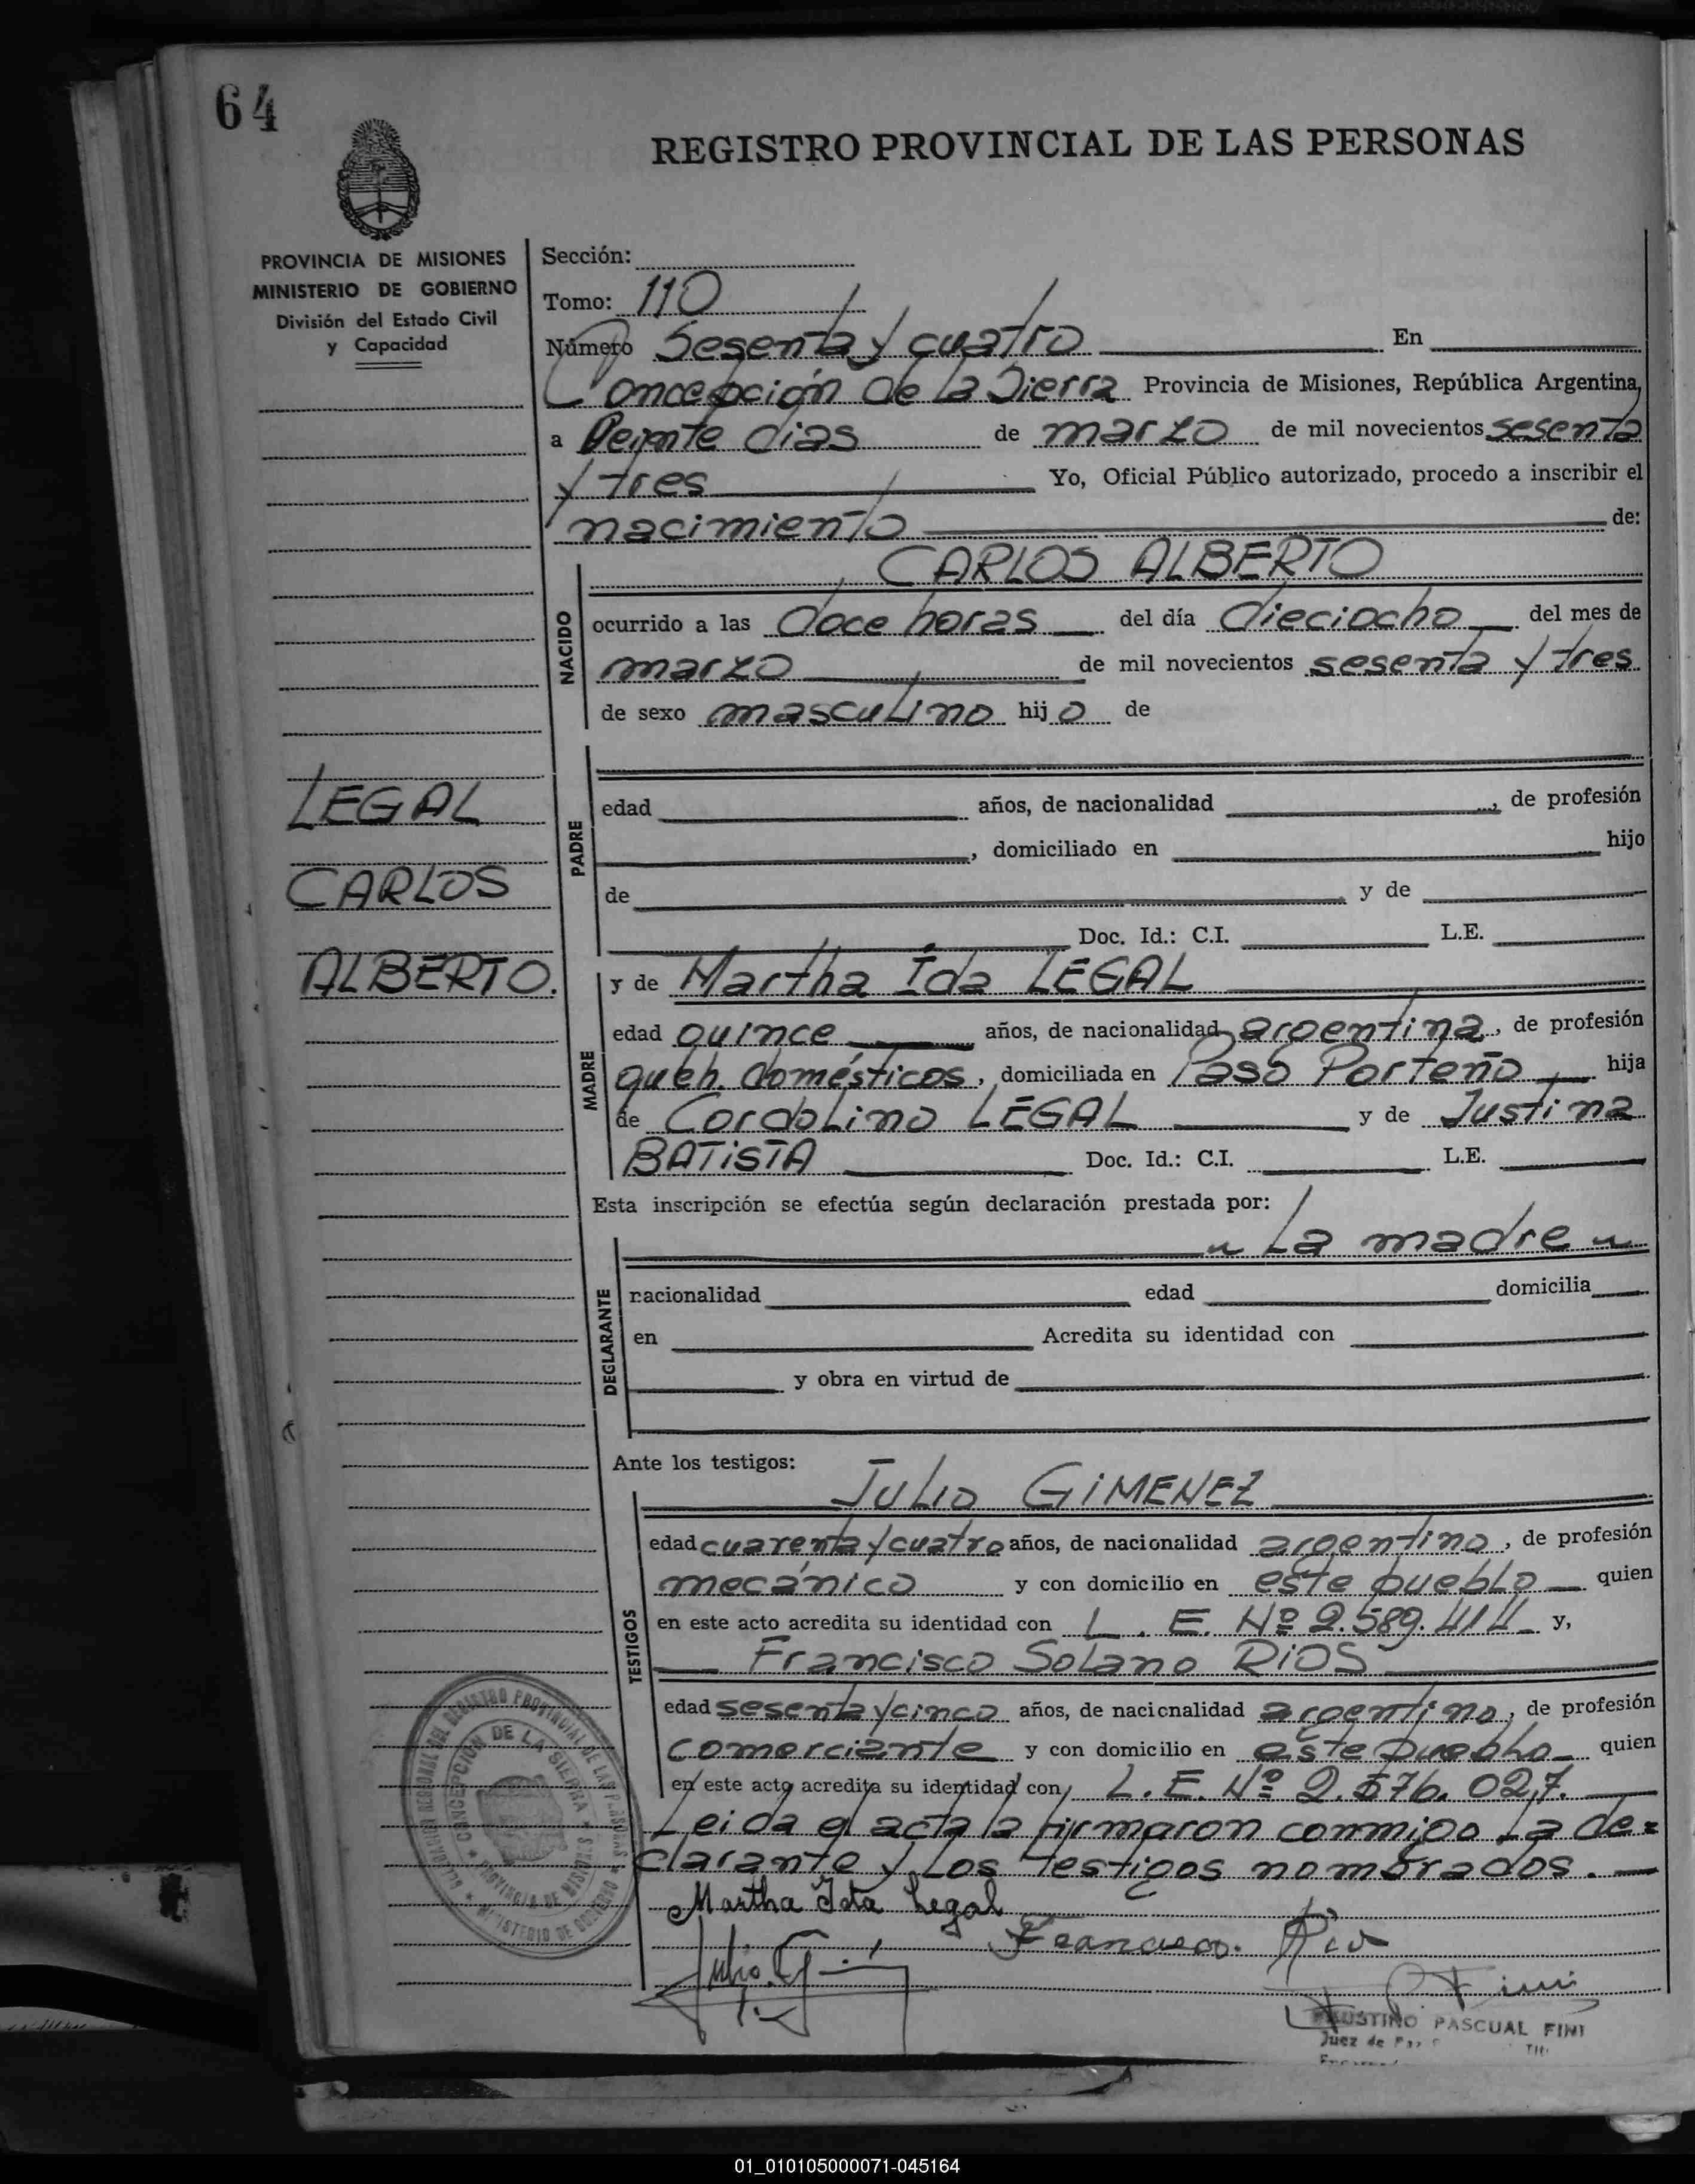 64
REGISTRO PROVINCIAL DE LAS PERSONAS
PROVINCIA DE MISIONES
MINISTERIO DE GOBIERNO
División del Estado Civil
y Capacidad
Sección:
Tomo: 110
Número Sesenta y cuatro En
Concepción de la Sierra Provincia de Misiones, República Argentina,
a Veinte dias de marzo de mil novecientos sesenta
y tres Yo, Oficial Público autorizado, procedo a inscribir el
nacimiento de:
NACIDO
CARLOS ALBERTO
ocurrido a las doce horas del día dieciocho del mes de
marzo de mil novecientos sesenta y tres
de sexo masculino hijo de
LEGAL
CARLOS
ALBERTO.
PADRE
edad años, de nacionalidad , de profesión
, domiciliado en hijo
de y de
Doc. Id.: C.I. L.E.
MADRE
y de Martha Ida LEGAL
edad quince años, de nacionalidad argentina, de profesión
queh. domésticos, domiciliada en Paso Porteño hija
de Cordolino LEGAL y de Justina
BATISTA Doc. Id.: C.I. L.E.
Esta inscripción se efectúa según declaración prestada por:
La madre
DECLARANTE
nacionalidad edad domicilia
en Acredita su identidad con
y obra en virtud de
Ante los testigos:
TESTIGOS
Julio GIMENEZ
edad cuarenta y cuatro años, de nacionalidad argentino, de profesión
mecánico y con domicilio en este pueblo quien
en este acto acredita su identidad con L. E. Nº 2.589.414 y,
Francisco Solano RIOS
edad sesenta y cinco años, de nacionalidad argentino, de profesión
comerciante y con domicilio en este pueblo quien
en este acto acredita su identidad con L. E. Nº 2.576.027.
Leida el acta la firmaron conmigo la de=
clarante y los testigos nombrados.
Martha Ida Legal
Francisco. Rios
Julio
FAUSTINO PASCUAL FINI
Juez de Paz
CONCEPCION DE LA SIERRA
PROVINCIA DE MISIONES
DEL REGISTRO PROVINCIAL DE LAS PERSONAS
MINISTERIO DE GOBIERNO
01_010105000071-045164